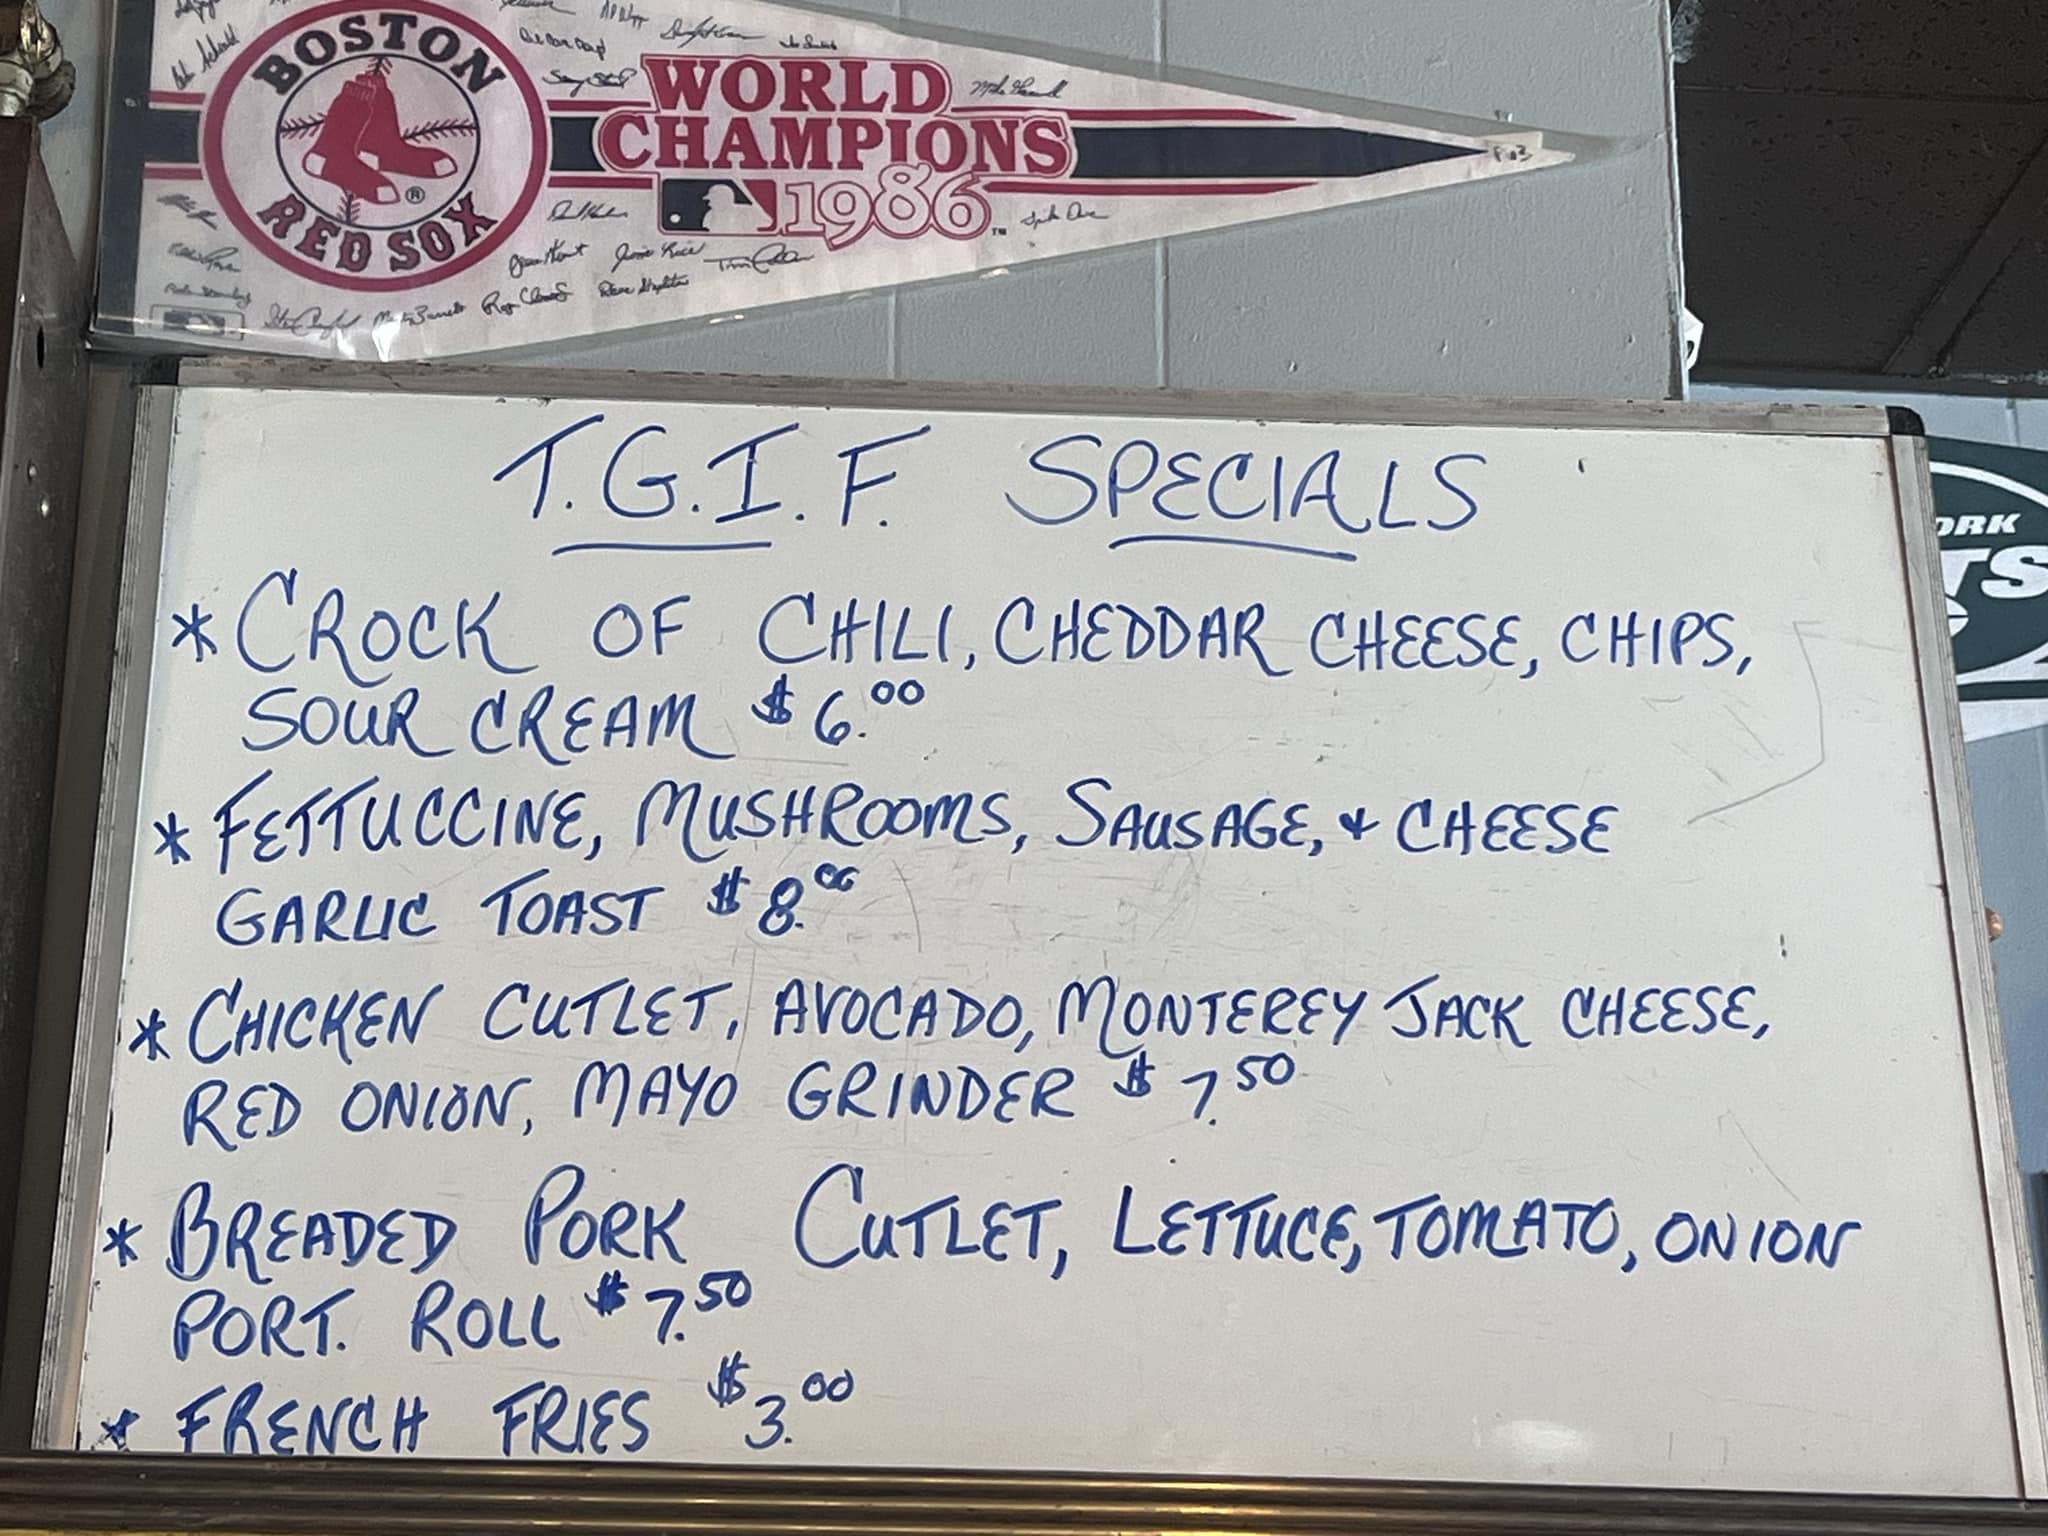 BOSTON
RED SOX
®
WORLD
CHAMPIONS
1986
™
Jim Rice
Marty Barrett
Dave Stapleton
T.G.I.F. SPECIALS
* CROCK OF CHILI, CHEDDAR CHEESE, CHIPS,
SOUR CREAM $6.00
* FETTUCCINE, MUSHROOMS, SAUSAGE, & CHEESE
GARLIC TOAST $8.00
* CHICKEN CUTLET, AVOCADO, MONTEREY JACK CHEESE,
RED ONION, MAYO GRINDER $7.50
* BREADED PORK CUTLET, LETTUCE, TOMATO, ONION
PORT. ROLL $7.50
* FRENCH FRIES $3.00
ORK
TS